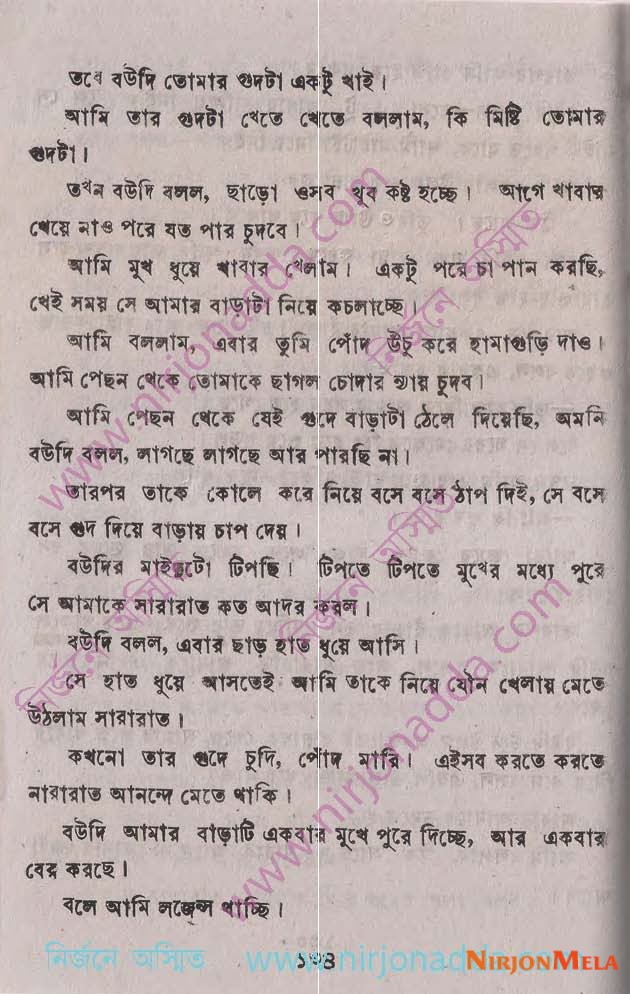 তবে বউদি তোমার গুদটা একটু খাই।
আমি তার গুদটা খেতে খেতে বললাম, কি মিষ্টি তোমার
গুদটা।
তখন বউদি বলল, ছাড়ো ওসব খুব কষ্ট হচ্ছে। আগে খাবার
খেয়ে নাও পরে যত পার চুদবে।
আমি মুখ ধুয়ে খাবার খেলাম। একটু পরে চা পান করছি,
সেই সময় সে আমার বাড়াটা নিয়ে কচলাচ্ছে।
আমি বললাম, এবার তুমি পোঁদ উঁচু করে হামাগুড়ি দাও।
আমি পেছন থেকে তোমাকে ছাগল চোদার ন্যায় চুদব।
আমি পেছন থেকে যেই গুদে বাড়াটা ঠেলে দিয়েছি, অমনি
বউদি বলল, লাগছে লাগছে আর পারছি না।
তারপর তাকে কোলে করে নিয়ে বসে বসে ঠাপ দিই, সে বসে
বসে গুদ দিয়ে বাড়ায় চাপ দেয়।
বউদির মাইদুটো টিপছি। টিপতে টিপতে মুখের মধ্যে পুরে
সে আমাকে সারারাত কত আদর করল।
বউদি বলল, এবার ছাড় হাত ধুয়ে আসি।
সে হাত ধুয়ে আসতেই আমি তাকে নিয়ে যৌন খেলায় মেতে
উঠলাম সারারাত।
কখনো তার গুদে চুদি, পোঁদ মারি। এইসব করতে করতে
সারারাত আনন্দে মেতে থাকি।
বউদি আমার বাড়াটি একবার মুখে পুরে দিচ্ছে, আর একবার
বের করছে।
বলে আমি লজেন্স খাচ্ছি।
নির্জনে অস্মিত www.nirjonadda.com
NIRJONMELA